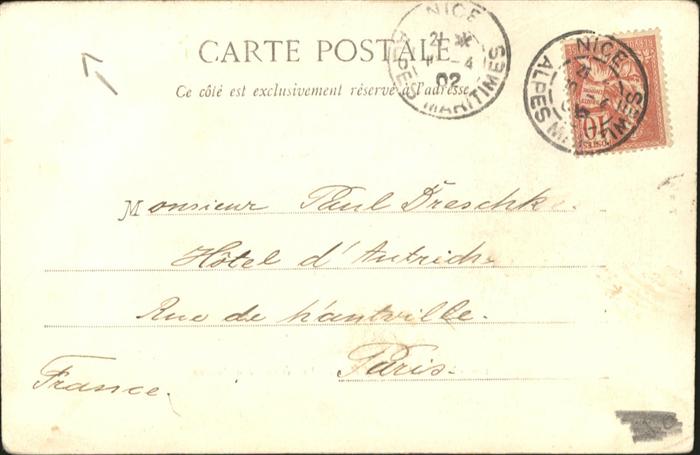 CARTE POSTALE
Ce côté est exclusivement réservé à l'adresse
NICE
21
4
02
ALPES MARITIMES
NICE
ALPES MARITIMES
10
POSTES
Monsieur Paul Dreschke.
Hôtel d'Autriche
Rue de hautville.
Paris.
France.